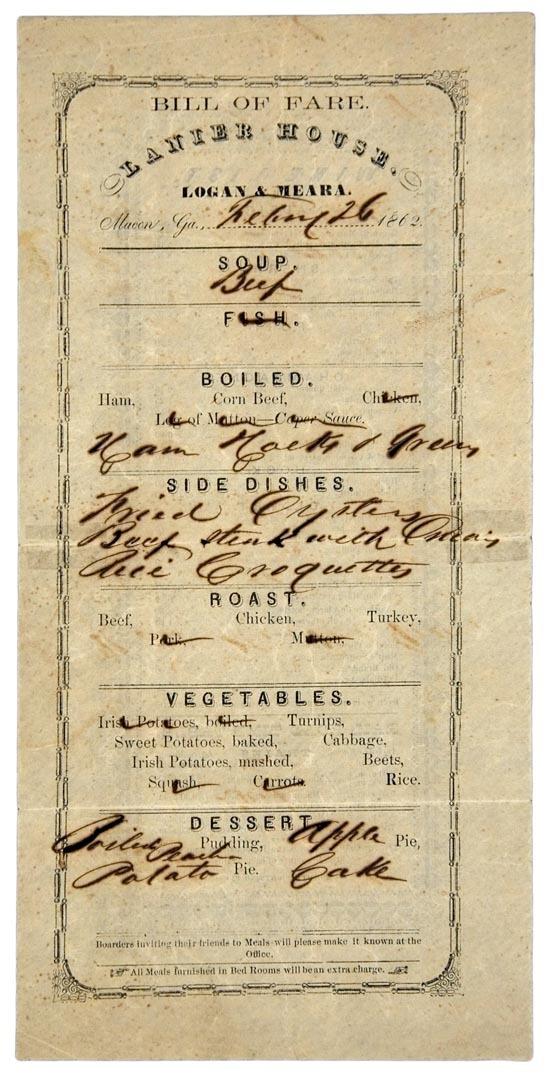 BILL OF FARE.
LANIER HOUSE.
LOGAN & MEARA.
Macon, Ga., 26 1862.
SOUP.
Beef
FISH.
BOILED.
Ham, Corn Beef, Chicken,
Leg of Mutton—Caper Sauce.
Ham Hocks & Greens
SIDE DISHES.
Fried Oysters
Beef steak with Onions
Rice Croquettes
ROAST.
Beef, Chicken, Turkey,
Pork, Mutton,
VEGETABLES.
Irish Potatoes, boiled, Turnips,
Sweet Potatoes, baked, Cabbage,
Irish Potatoes, mashed, Beets,
Squash, Carrots. Rice.
DESSERT
Boiled Pudding, Apple Pie,
Potato Pie. Cake
Boarders inviting their friends to Meals will please make it known at the
Office.
All Meals furnished in Bed Rooms will be an extra charge.